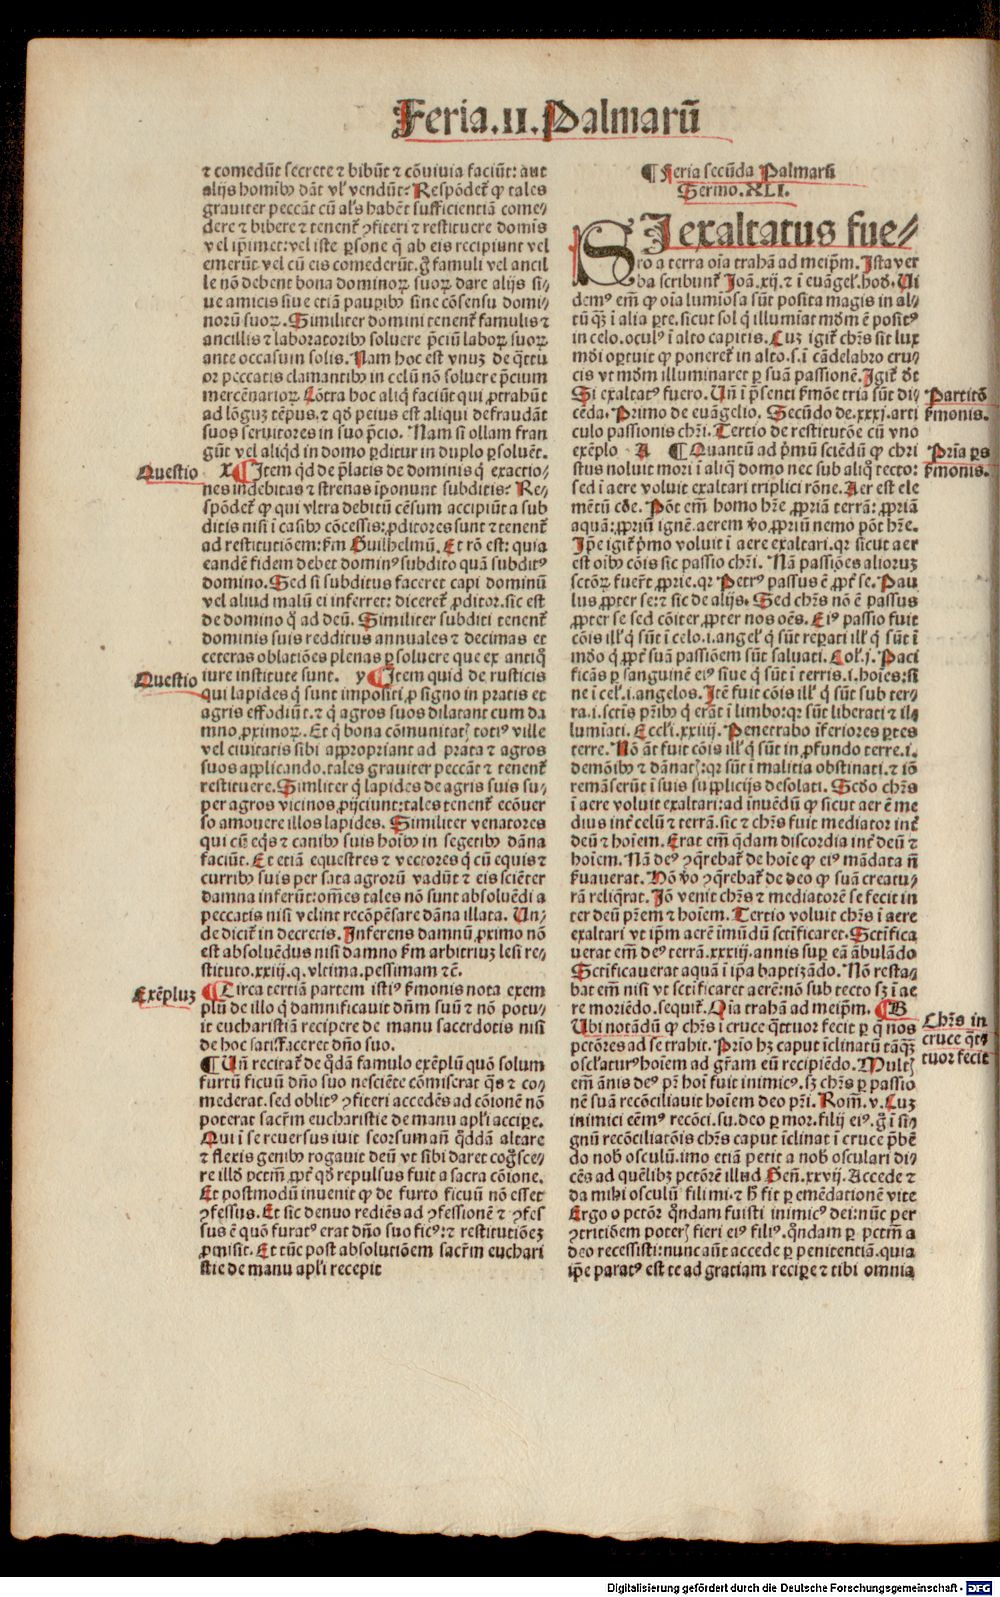 Feria.II.Palmarū
⁊ comedūt secrete ⁊ bibūt ⁊ cōuiuia faciūt: aut
alijs homībꝰ dāt vl' vendūt? Respōdet̄ ꝙ tales
grauiter peccāt cū al's habēt sufficientiā come⸗
dere ⁊ bibere ⁊ tenent̄ ꝯfiteri ⁊ restituere domīs
vel ip̄imet: vel iste ꝑsone q̄ ab eis recipiunt vel
emerūt vel cū eis comederūt. g̊ famuli vel ancil
le nō debent bona dominoꝝ suoꝝ dare alijs si⸗
ue amicis siue etiā pauꝑibꝰ sine cōsensu domi⸗
norū suoꝝ. Similiter domini tenent̄ famulis ⁊
ancillis ⁊ laboratoribꝰ soluere p̄ciū laboꝝ suoꝝ
ante occasum solis. Nam hoc est vnuȝ de q̄ttu
or peccatis clamantibꝰ in celū nō soluere p̄cium
mercēnarioꝝ. Cōtra hoc aliq̄ faciūt qui ꝓtrahūt
ad lōguȝ tēpus. ⁊ qd̄ peius est aliqui defraudāt
suos seruitores in suo p̄cio. Nam si ollam fran
gūt vel aliq̄d in domo ꝑditur in duplo ꝑsoluēt.
Questio x ¶ Item qd̄ de p̄latis de dominis q̄ exactio⸗
nes indebitas ⁊ strenas īponunt subditis? Re⸗
spōdet̄ ꝙ qui vltra debitū cēsum accipiūt a sub
ditis nisi ī casibꝰ cōcessis: ꝓditores sunt ⁊ tenent̄
ad restitutiōem: fm̄ Guilhelmū. Et rō est: quia
eandē fidem debet dominꝰ subdito quā subditꝰ
domino. Sed si subditus faceret capi dominū
vel aliud malū ei inferret: diceret̄ ꝓditor. sic est
de domino q̄ ad deū. Similiter subditi tenent̄
dominis suis redditus annuales ⁊ decimas et
ceteras oblatiōes plenas ꝑsoluere que ex antiq̄
Questio iure institute sunt. y ¶ Item quid de rusticis
qui lapides q̄ sunt impositi ꝓ signo in pratis et
agris effodiūt. ⁊ q̄ agros suos dilatant cum da
mno ꝓximoꝝ. Et q̄ bona cōmunitatꝭ totiꝰ ville
vel ciuitatis sibi appropriant ad prata ⁊ agros
suos applicando. tales grauiter peccāt ⁊ tenent̄
restituere. Similiter q̄ lapides de agris suis su⸗
per agros vicinos ꝓijciunt: tales tenent̄ ecōuer
so amouere illos lapides. Similiter venatores
qui cū eq̄s ⁊ canibꝰ suis hoīm in segetibꝰ dāna
faciūt. Et etiā equestres ⁊ vectores q̄ cū equis ⁊
curribꝰ suis per sata agrorū vadūt ⁊ eis sciēter
damna inferūt: om̄es tales nō sunt absoluēdi a
peccatis nisi velint recōpēsare dāna illata. Un⸗
de dicit̄ in decretis. Inferens damnū ꝓximo nō
est absoluēdus nisi damno fm̄ arbitriuȝ lesi re⸗
stituto. xxiij. q. vltima. pessimam ⁊c̄.
Exēpluȝ ¶ Circa tertiā partem istiꝰ s̄monis nota exem
plū de illo q̄ damnificauit dn̄m suū ⁊ nō potu⸗
it eucharistiā recipere de manu sacerdotis nisi
de hoc satisfaceret dn̄o suo.
¶ Un̄ recitat̄ de q̄dā famulo exēplū quō solum
furtū ficuū dn̄o suo nesciēte cōmiserat q̄s ⁊ co⸗
mederat. sed oblitꝰ ꝯfiteri accedēs ad cōionē nō
poterat sacr̄m eucharistie de manu apl'i acciꝑe.
Qui ī se reuersus iuit seorsum an̄ q̄ddā altare
⁊ flexis genibꝰ rogauit deū vt sibi daret cog̊sce⸗
re illd̄ pctm̄ ꝓpt̄ qd̄ repulsus fuit a sacra cōione.
Et postmodū inuenit ꝙ de furto ficuū nō esset
ꝯfessus. Et sic denuo rediēs ad ꝯfessionē ⁊ ꝯfes
sus ē quō furatꝰ erat dn̄o suo ficꝰ: ⁊ restitutiōeȝ
ꝓmisit. Et tūc post absolutiōem sacr̄m euchari
stie de manu apl'i recepit
¶ Feria secūda Palmarū
Sermo.XLI.
SI exaltatus fue⸗
ro a terra oīa trahā ad meip̄m. Ista ver
ba scribunt̄ Joā. xij. ⁊ ī euāgel'. hod̄. Ui
demꝰ em̄ ꝙ oīa lumīosa sūt posita magis in al⸗
tū q̄ȝ ī alia ꝑte. sicut sol q̄ illumīat mdm̄ ē positꝰ
in celo. oculꝰ ī alto capitis. Cuȝ igit̄ chr̄s sit lux
mdi oꝑtuit ꝙ poneret̄ in alto. s. ī cādelabro cru⸗
cis vt mdm̄ illuminaret ꝑ suā passionē. Igit̄ dt̄
Si exaltatꝰ fuero. Un̄ ī p̄senti s̄mōe tria sūt di⸗
cēda. Primo de euāgelio. Secūdo de. xxxj. arti
culo passionis chr̄i. Tertio de restitutōe cū vno
exēplo A ¶ Quantū ad p̄mū sciēdū ꝙ chri
stus noluit mori ī aliq̄ domo nec sub aliq̄ tecto:
sed ī aere voluit exaltari triplici rōne. Aer est ele
mētū cōe. Pōt em̄ homo hr̄e ꝓpriā terrā: ꝓpriā
aquā: ꝓpriū ignē. aerem v̄o ꝓpriū nemo pōt hr̄e.
Ip̄e igit̄ p̄mo voluit ī aere exaltari. qꝛ sicut aer
est oībꝰ cōis sic passio chr̄i. Nā passiōes alioruȝ
sctōꝝ fuer̄t ꝓprie. qꝛ Petrꝰ passus ē ꝓpt̄ se. Pau
lus ꝓpter se: ⁊ sic de alijs. Sed chr̄s nō ē passus
ꝓpter se sed cōiter ꝓpter nos oēs. Eiꝰ passio fuit
cōis ill' q̄ sūt ī celo. i. angel' q̄ sūt reꝑati ill' q̄ sūt ī
mdo q̄ ꝓpt̄ suā passiōem sūt saluati. Col'. j. Paci
ficās ꝑ sanguinē eiꝰ siue q̄ sūt ī terris. i. hoīes: si
ne ī cel'. i. angelos. Itē fuit cōis ill' q̄ sūt sub ter⸗
ra. i. sctīs pr̄ibꝰ q̄ erāt ī limbo: qꝛ sūt liberati ⁊ il⸗
lumīati. Eccl'i. xxiiij. Penetrabo īferiores ꝑtes
terre. Nō āt fuit cōis ill' q̄ sūt in ꝓfundo terre. i.
demōibꝰ ⁊ dānatꝭ: qꝛ sūt ī malitia obstinati. ⁊ iō
remāserūt ī suis supplicijs desolati. Scd̄o chr̄s
ī aere voluit exaltari: ad īnuēdū ꝙ sicut aer ē me
dius int̄ celū ⁊ terrā. sic ⁊ chr̄s fuit mediator int̄
deū ⁊ hoīem. Erat em̄ q̄dam discordia int̄ deū ⁊
hoīem. Nā deꝰ ꝯq̄rebat̄ de hoīe ꝙ eiꝰ mādata n̄
s̄uauerat. Hō v̄o ꝯq̄rebat̄ de deo ꝙ suā creatu⸗
rā reliq̄rat. Iō venit chr̄s ⁊ mediatorē se fecit in
ter deū pr̄em ⁊ hoīem. Tertio voluit chr̄s ī aere
exaltari vt ip̄m aerē īmūdū sctīficaret. Sctīfica
uerat em̄ deꝰ terrā. xxxiij. annis suꝑ eā ābulādo
Sctīficauerat aquā ī ip̄a baptizādo. Nō resta⸗
bat em̄ nisi vt sctīficaret aerē: nō sub tecto sȝ ī ae
re moriēdo. sequit̄. Oīa trahā ad meip̄m. ¶ B
Ubi notādū ꝙ chr̄s ī cruce q̄ttuor fecit ꝑ q̄ nos
pctōres ad se trahit. Prīo hȝ caput īclinatū tāq̄ȝ
oscl'aturꝰ hoīem ad gr̄am eū recipiēdo. Multꝭ
em̄ ānis deꝰ pr̄ hoī fuit inimicꝰ. sȝ chr̄s ꝑ passio
nē suā recōciliauit hoīem deo pr̄i. Rom̄. v. Cuȝ
inimici eēmꝰ recōci. su. deo ꝑ mor. filij eiꝰ. g̊ ī si⸗
gnū recōciliatōis chr̄s caput īclinat ī cruce p̄bē
do nob̄ osculū. imo etiā petit a nob̄ osculari di⸗
cēs ad quēlibȝ pctōrē illud Gen̄. xxvij. Accede ⁊
da mihi osculū fili mi. ⁊ h̄ fit ꝑ emēdationē vite
Ergo o pctōr q̄ndam fuisti inimicꝰ dei: nūc per
ꝯtritiōem poterꝭ fieri eiꝰ filiꝰ. q̄ndam ꝑ pctm̄ a
deo recessisti: nunc aūt accede ꝑ penitentiā. quia
ip̄e paratꝰ est te ad gratiam reciꝑe ⁊ tibi omnia
Partitō
s̄monis.
Prīa ꝑs
s̄monis.
Chr̄s in
cruce q̄t⸗
tuor fecit
Digitalisierung gefördert durch die Deutsche Forschungsgemeinschaft - DFG